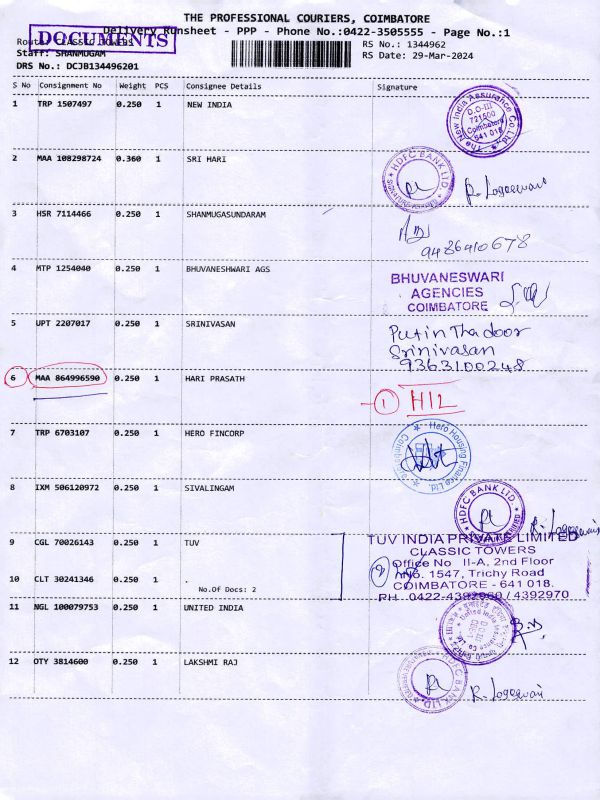 THE PROFESSIONAL COURIERS, COIMBATORE
Delivery Runsheet - PPP - Phone No.:0422-3505555 - Page No.:1
DOCUMENTS
Route: CLASSIC TOWERS
RS No.: 1344962
Staff: SHANMUGAM
RS Date: 29-Mar-2024
DRS No.: DCJB134496201
S No Consignment No Weight PCS Consignee Details Signature
1 TRP 1507497 0.250 1 NEW INDIA
The New India Assurance Co Ltd.
D.O-III
721500
Coimbatore
641 018
2 MAA 108298724 0.360 1 SRI HARI
HDFC BANK LTD.
R. Logeswari
3 HSR 7114466 0.250 1 SHANMUGASUNDARAM
9486410678
4 MTP 1254040 0.250 1 BHUVANESHWARI AGS
BHUVANESWARI
AGENCIES
COIMBATORE
5 UPT 2207017 0.250 1 SRINIVASAN
Put in Tha door
Srinivasan
9363100248
6 MAA 864996590 0.250 1 HARI PRASATH
1 H12
7 TRP 6703107 0.250 1 HERO FINCORP
Hero Housing Finance Ltd.
8 IXM 506120972 0.250 1 SIVALINGAM
HDFC BANK LTD.
R. Logeswari
9 CGL 70026143 0.250 1 TUV
TUV INDIA PRIVATE LIMITED
CLASSIC TOWERS
Office No II-A, 2nd Floor
No. 1547, Trichy Road
COIMBATORE - 641 018.
PH. 0422-4392960 / 4392970
10 CLT 30241346 0.250 1 .
No.Of Docs: 2
11 NGL 100079753 0.250 1 UNITED INDIA
12 OTY 3814600 0.250 1 LAKSHMI RAJ
HDFC BANK LTD.
R. Logeswari